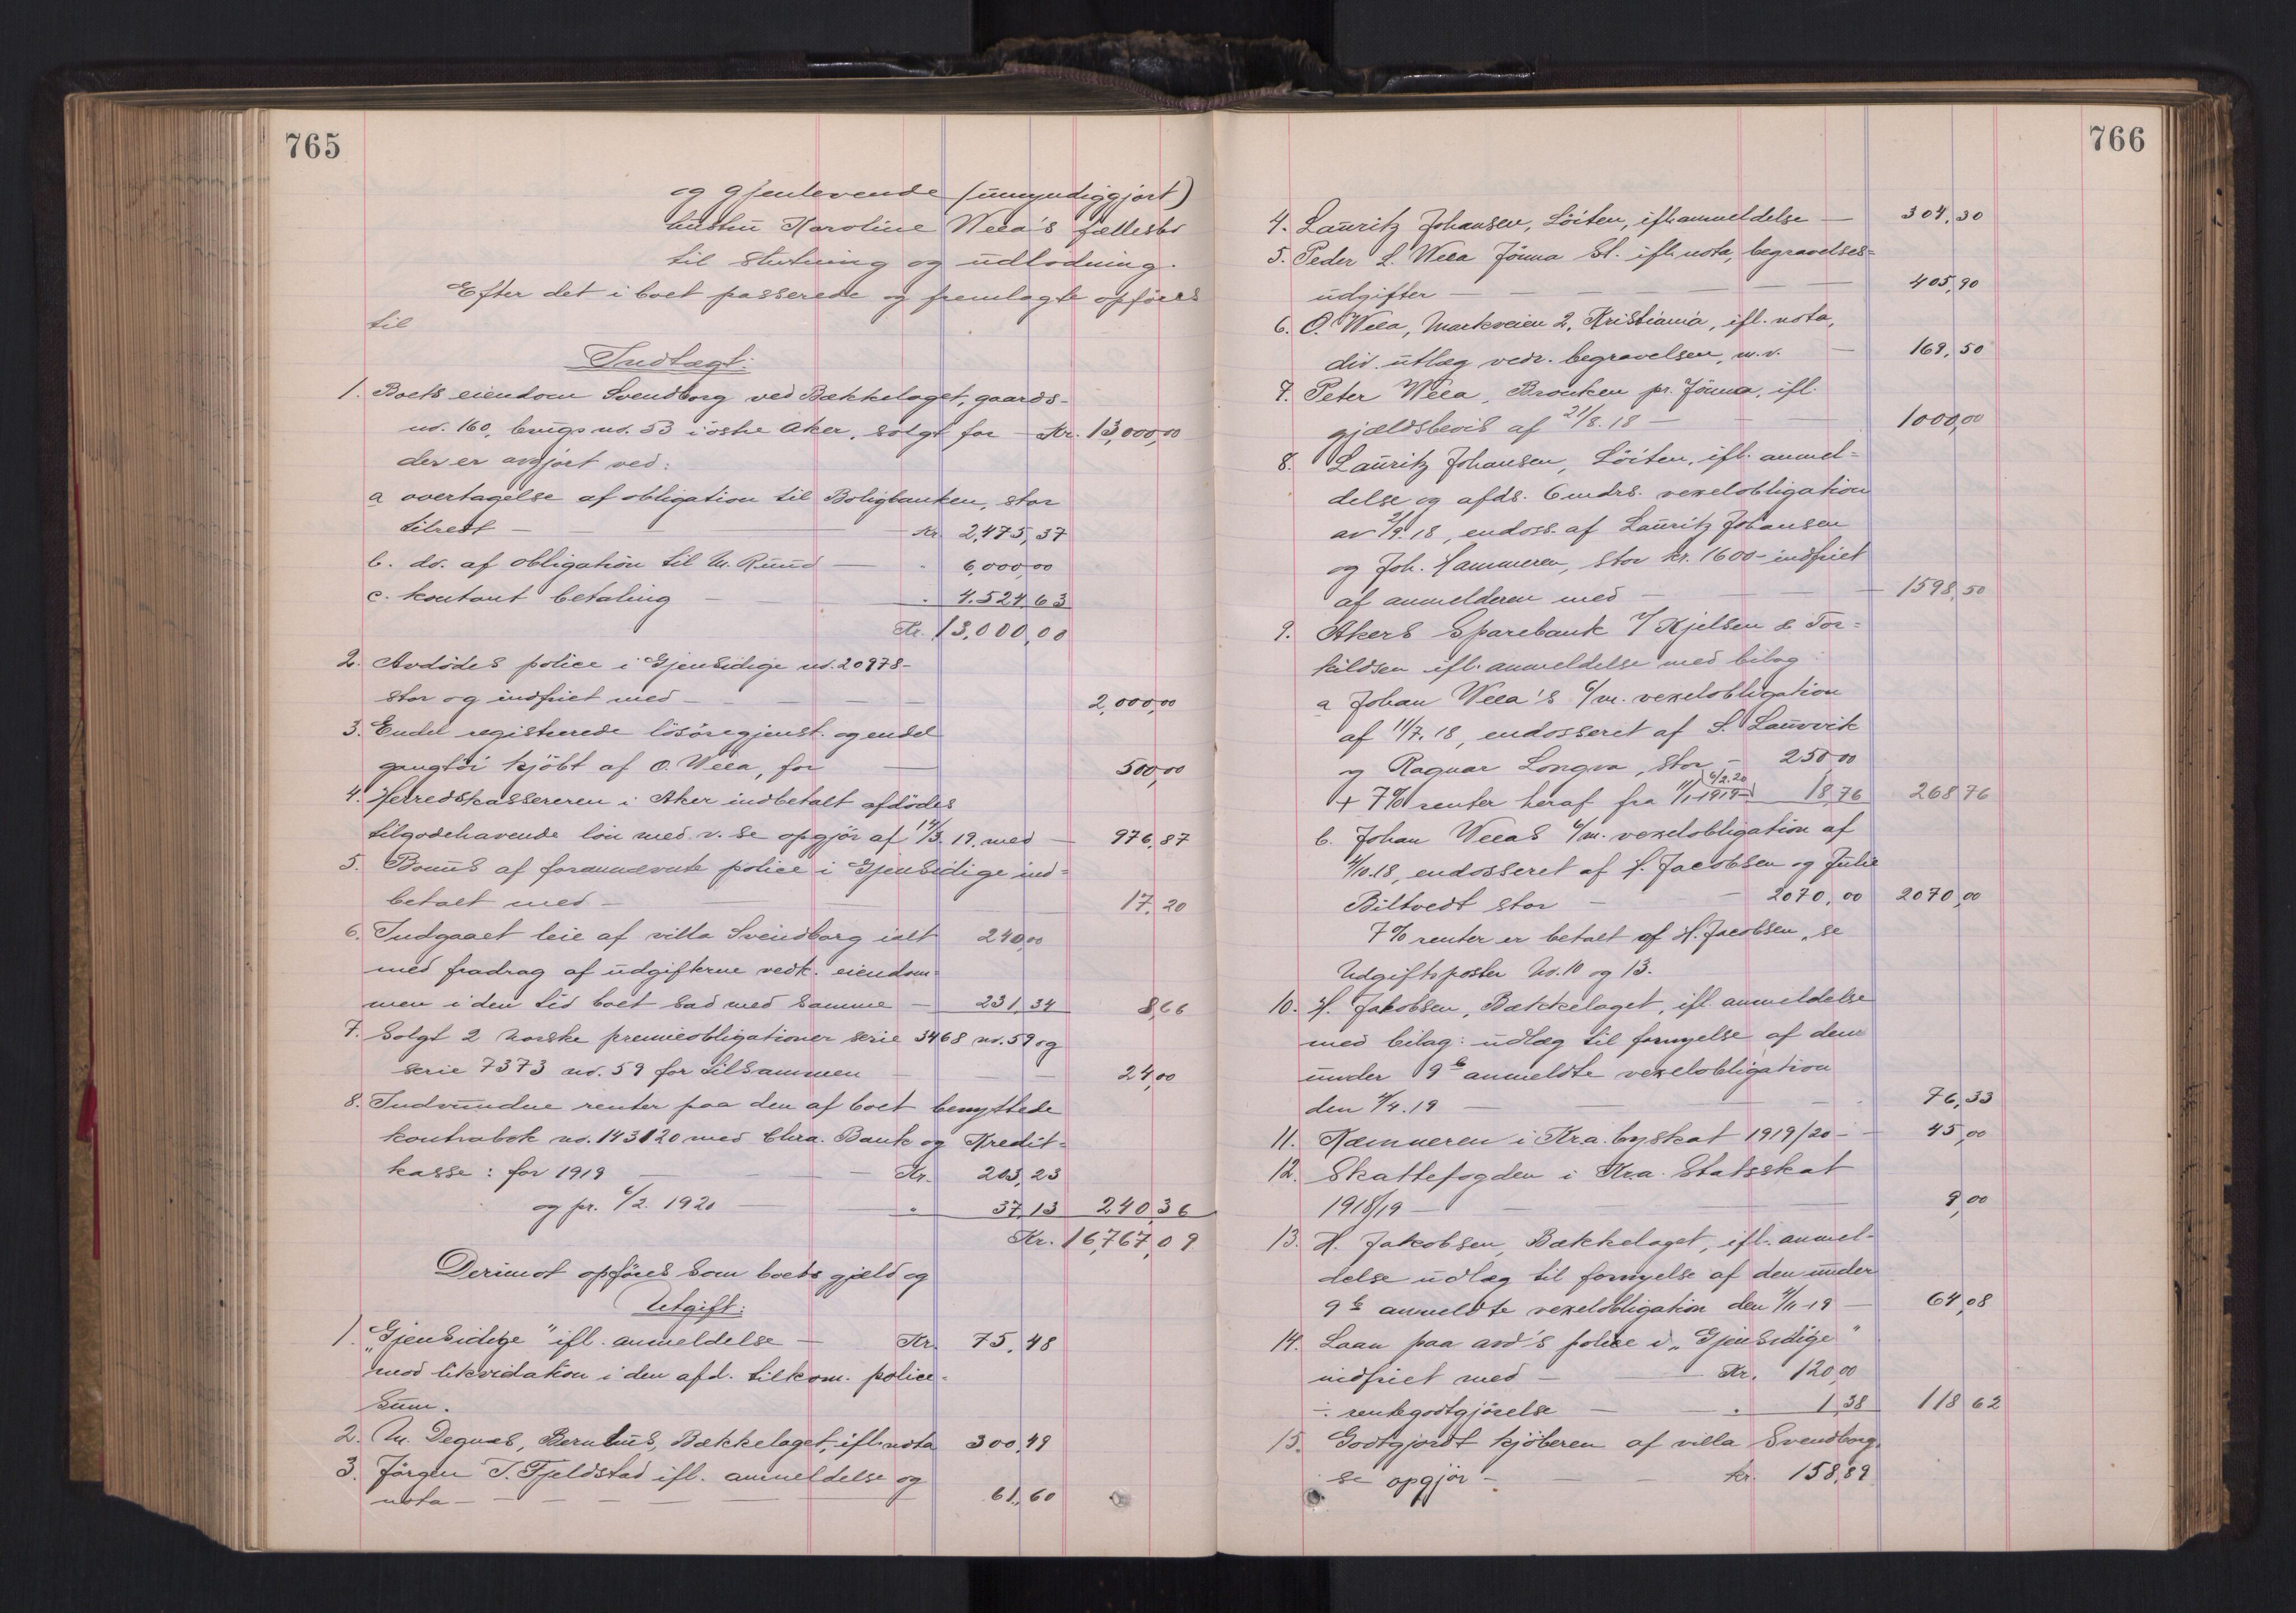 765
og gjenlevende (umyndiggjort)
hustru Karoline Weea's fællesbo
til slutning og udlodning.
Efter det i boet passerede og fremlagte opføres
til
Indtægt:
1. Boets eiendom Svendborg ved Bækkelaget, gaards-
no. 160, brugs no. 53 i østre Aker, solgt for - Kr. 13,000,00
der er avgjort ved:
a overtagelse af obligation til Boligbanken, stor
tilrest - Kr. 2,475,37
b. do. af obligation til M. Ruud - " 6,000,00
c. kontant betaling - " 4.524,63
Kr. 13,000,00
2. Avdødes police i Gjensidige no. 20978-
stor og indfriet med - 2,000,00
3. Endel registrerede løsøregjenst. og endel
gangtøi kjøbt af O. Weea, for - 500,00
4. Herredskassereren i Aker indbetalt afdødes
tilgodehavende løn med v. se opgjør af 14/3. 19. med - 976,87
5. Bonus af forannævnte police i Gjensidige ind=
betalt med - 17,20
6. Indgaaet leie af villa Svendborg ialt 240,00
med fradrag af udgifterne vedk. eiendom=
men i den tid boet sad med samme - 231,34 8,66
7. Solgt 2 norske premieobligationer serie 3468 no. 59 og
serie 7373 no. 59 for tilsammen - 24,00
8. Indvundne renter paa den af boet benyttede
kontrabok no. 143120 med Chra. Bank og Kredit=
kasse: for 1919 - Kr. 203,23
og pr. 6/2. 1920 - " 37,13 240,36
Kr. 16,767,09
Derimot opføres som boets gjæld og
Utgift:
1. "Gjensidige" ifl. anmeldelse - Kr. 75,48
mod likvidation i den afd. tilkom. police=
sum.
2. M. Degnæs, Bernhus, Bækkelaget, ifl. nota 300,49
3. Jørgen T. Fjeldstad ifl. anmeldelse og
nota - 61,60
766
4. Lauritz Johansen, Løiten, ifl. anmeldelse - 304,30
5. Peder L. Weea Jønna St. ifl. nota, begravelses=
udgifter - 405,90
6. O. Weea, Markveien 2, Kristiania, ifl. nota,
div. utlæg vedr. begravelsen, m.v. - 169,50
7. Peter Weea, Bronken pr. Jønna, ifl.
gjældsbevis af 21/8. 18 - 1000,00
8. Lauritz Johansen, Løiten, ifl. anmel=
delse og afds. 6 mdrs. vexelobligation
av 2/9. 18, endoss. af Lauritz Johansen
og Joh. Hammeren, stor kr. 1600 - indfriet
af anmelderen med - 1598,50
9. Akers Sparebank v/ Kjelsen & Tor=
kildsen ifl. anmeldelse med bilag:
a Johan Weea's 6/m. vexelobligation
af 11/7. 18, endosseret af S. Laurvik
og Ragnar Longva, stor - 250,00
+ 7% renter heraf fra 11/1-1919-6/2.20 18,76 268,76
b. Johan Weeas 6/m. vexelobligation af
4/10.18, endosseret af H. Jacobsen og Julie
Biltvedt stor - 2070,00 2070,00
7% renter er betalt af H. Jacobsen, se
Udgiftsposter No. 10 og 13.
10. H. Jakobsen, Bækkelaget, ifl. anmeldelse
med bilag: udlæg til fornyelse af den
under 9 b anmeldte vexelobligation
den 4/4. 19 - 76,33
11. Kæmneren i Kra. byskat 1919/20 - 45,00
12. Skattefogden i Kra. Statsskat
1918/19 - 9,00
13. H. Jakobsen, Bækkelaget, ifl. anmel-
delse udlæg til fornyelse af den under
9 b anmeldte vexelobligation den 4/11-19 - 64,08
14. Laan paa avd's police i "Gjensidige"
indfriet med - Kr. 120,00
÷ rentegodtgjørelse - " 1,38 118,62
15. Godtgjordt kjøberen af villa Svendborg,
se opgjør - kr. 158,89